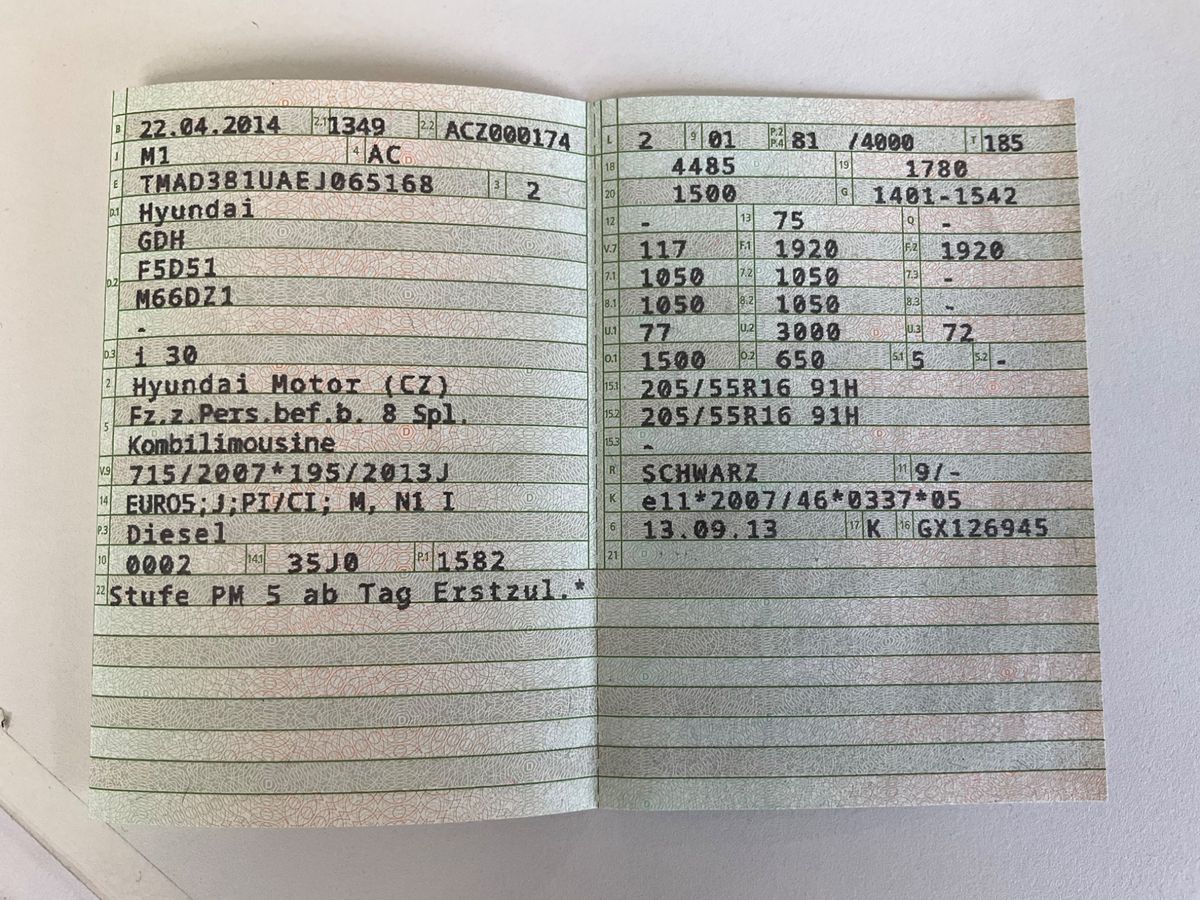 B 22.04.2014 2.1 1349 2.2 ACZ000174
J M1 4 AC
E TMAD381UAEJ065168 3 2
D.1 Hyundai
GDH
D.2 F5D51
M66DZ1
-
D.3 i 30
2 Hyundai Motor (CZ)
5 Fz.z.Pers.bef.b. 8 Spl.
Kombilimousine
V.9 715/2007*195/2013J
14 EURO5;J;PI/CI; M, N1 I
P.3 Diesel
10 0002 14.1 35J0 P.1 1582
22 Stufe PM 5 ab Tag Erstzul.*
L 2 9 01 P.2 P.4 81 /4000 T 185
18 4485 19 1780
20 1500 G 1401-1542
12 - 13 75 Q -
V.7 117 F.1 1920 F.2 1920
7.1 1050 7.2 1050 7.3 -
8.1 1050 8.2 1050 8.3 -
U.1 77 U.2 3000 U.3 72
O.1 1500 O.2 650 S.1 5 S.2 -
15.1 205/55R16 91H
15.2 205/55R16 91H
15.3 -
R SCHWARZ 11 9/-
K e11*2007/46*0337*05
6 13.09.13 17 K 16 GX126945
21